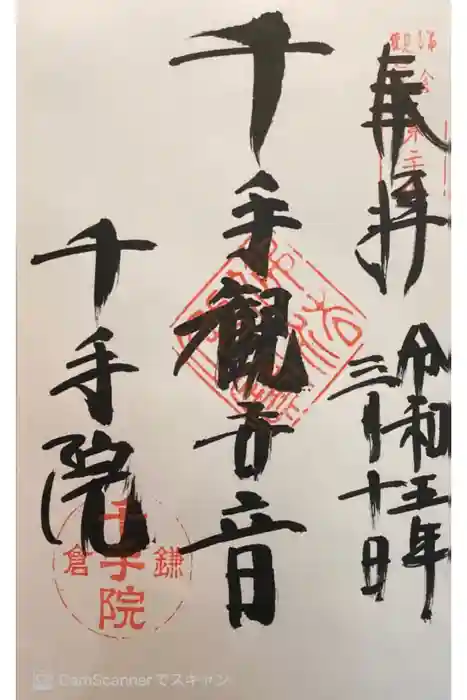 奉拝
令和五年
三月十日
千手観音
千手院
鎌倉
千手院
CamScannerでスキャン